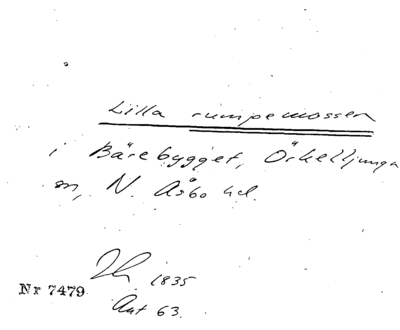 Lilla rumpemossen
i Bärebygget, Örkelljunga
sn, N. Åsbo hd.
1835
Nr 7479
Ant 63.